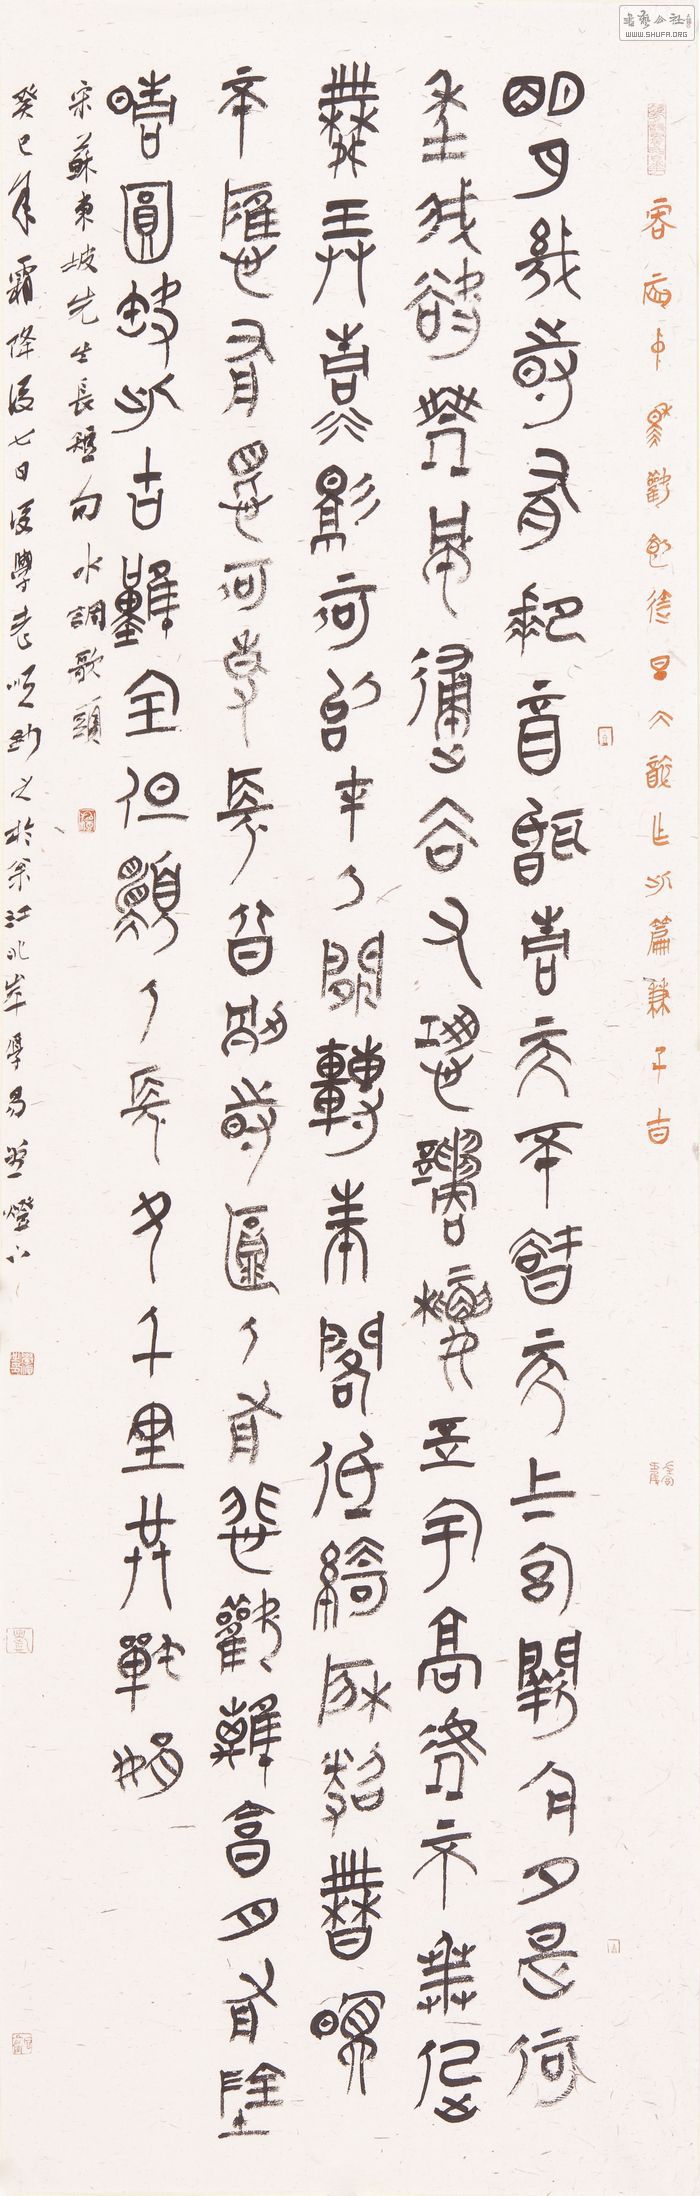 丙辰中秋歡飲達旦大醉作此篇兼子由
明月幾時有把酒問青天不知天上宮闕今夕是何
年我欲乘風歸去又恐瓊樓玉宇高處不勝寒起
舞弄清影何似在人間轉朱閣低綺戶照無眠
不應有恨何事長向別時圓人有悲歡離合月有陰
晴圓缺此古難全但願人長久千里共嬋娟
宋蘇東坡先生長短句水調歌頭
癸巳年霜降後七日後學老順鈔之於余江北岸學易草燈下
書藝公社
WWW.SHUFA.ORG